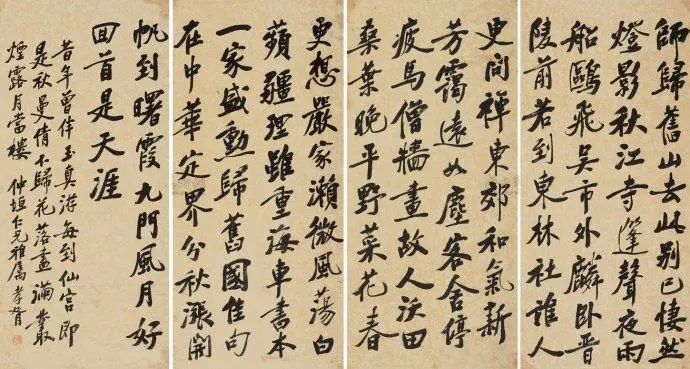 師歸舊山去此別已悽然
燈影秋江寺篷聲夜雨
船鷗飛吳市外麟臥晉
陵前若到東林社誰人
更問禪東郊和氣新
芳靄遠如塵客舍停
疲馬僧牆畫故人沃田
桑葉晚平野菜花春
更想嚴家瀨微風蕩白
蘋疆理雖重海車書本
一家盛勳歸舊國佳句
在中華定界分秋漲開
帆到曙霞九門風月好
回首是天涯
昔年曾伴玉真遊每到仙宮即
是秋曼倩不歸花落盡滿叢
煙露月當樓 仲垣仁兄雅屬 孝胥